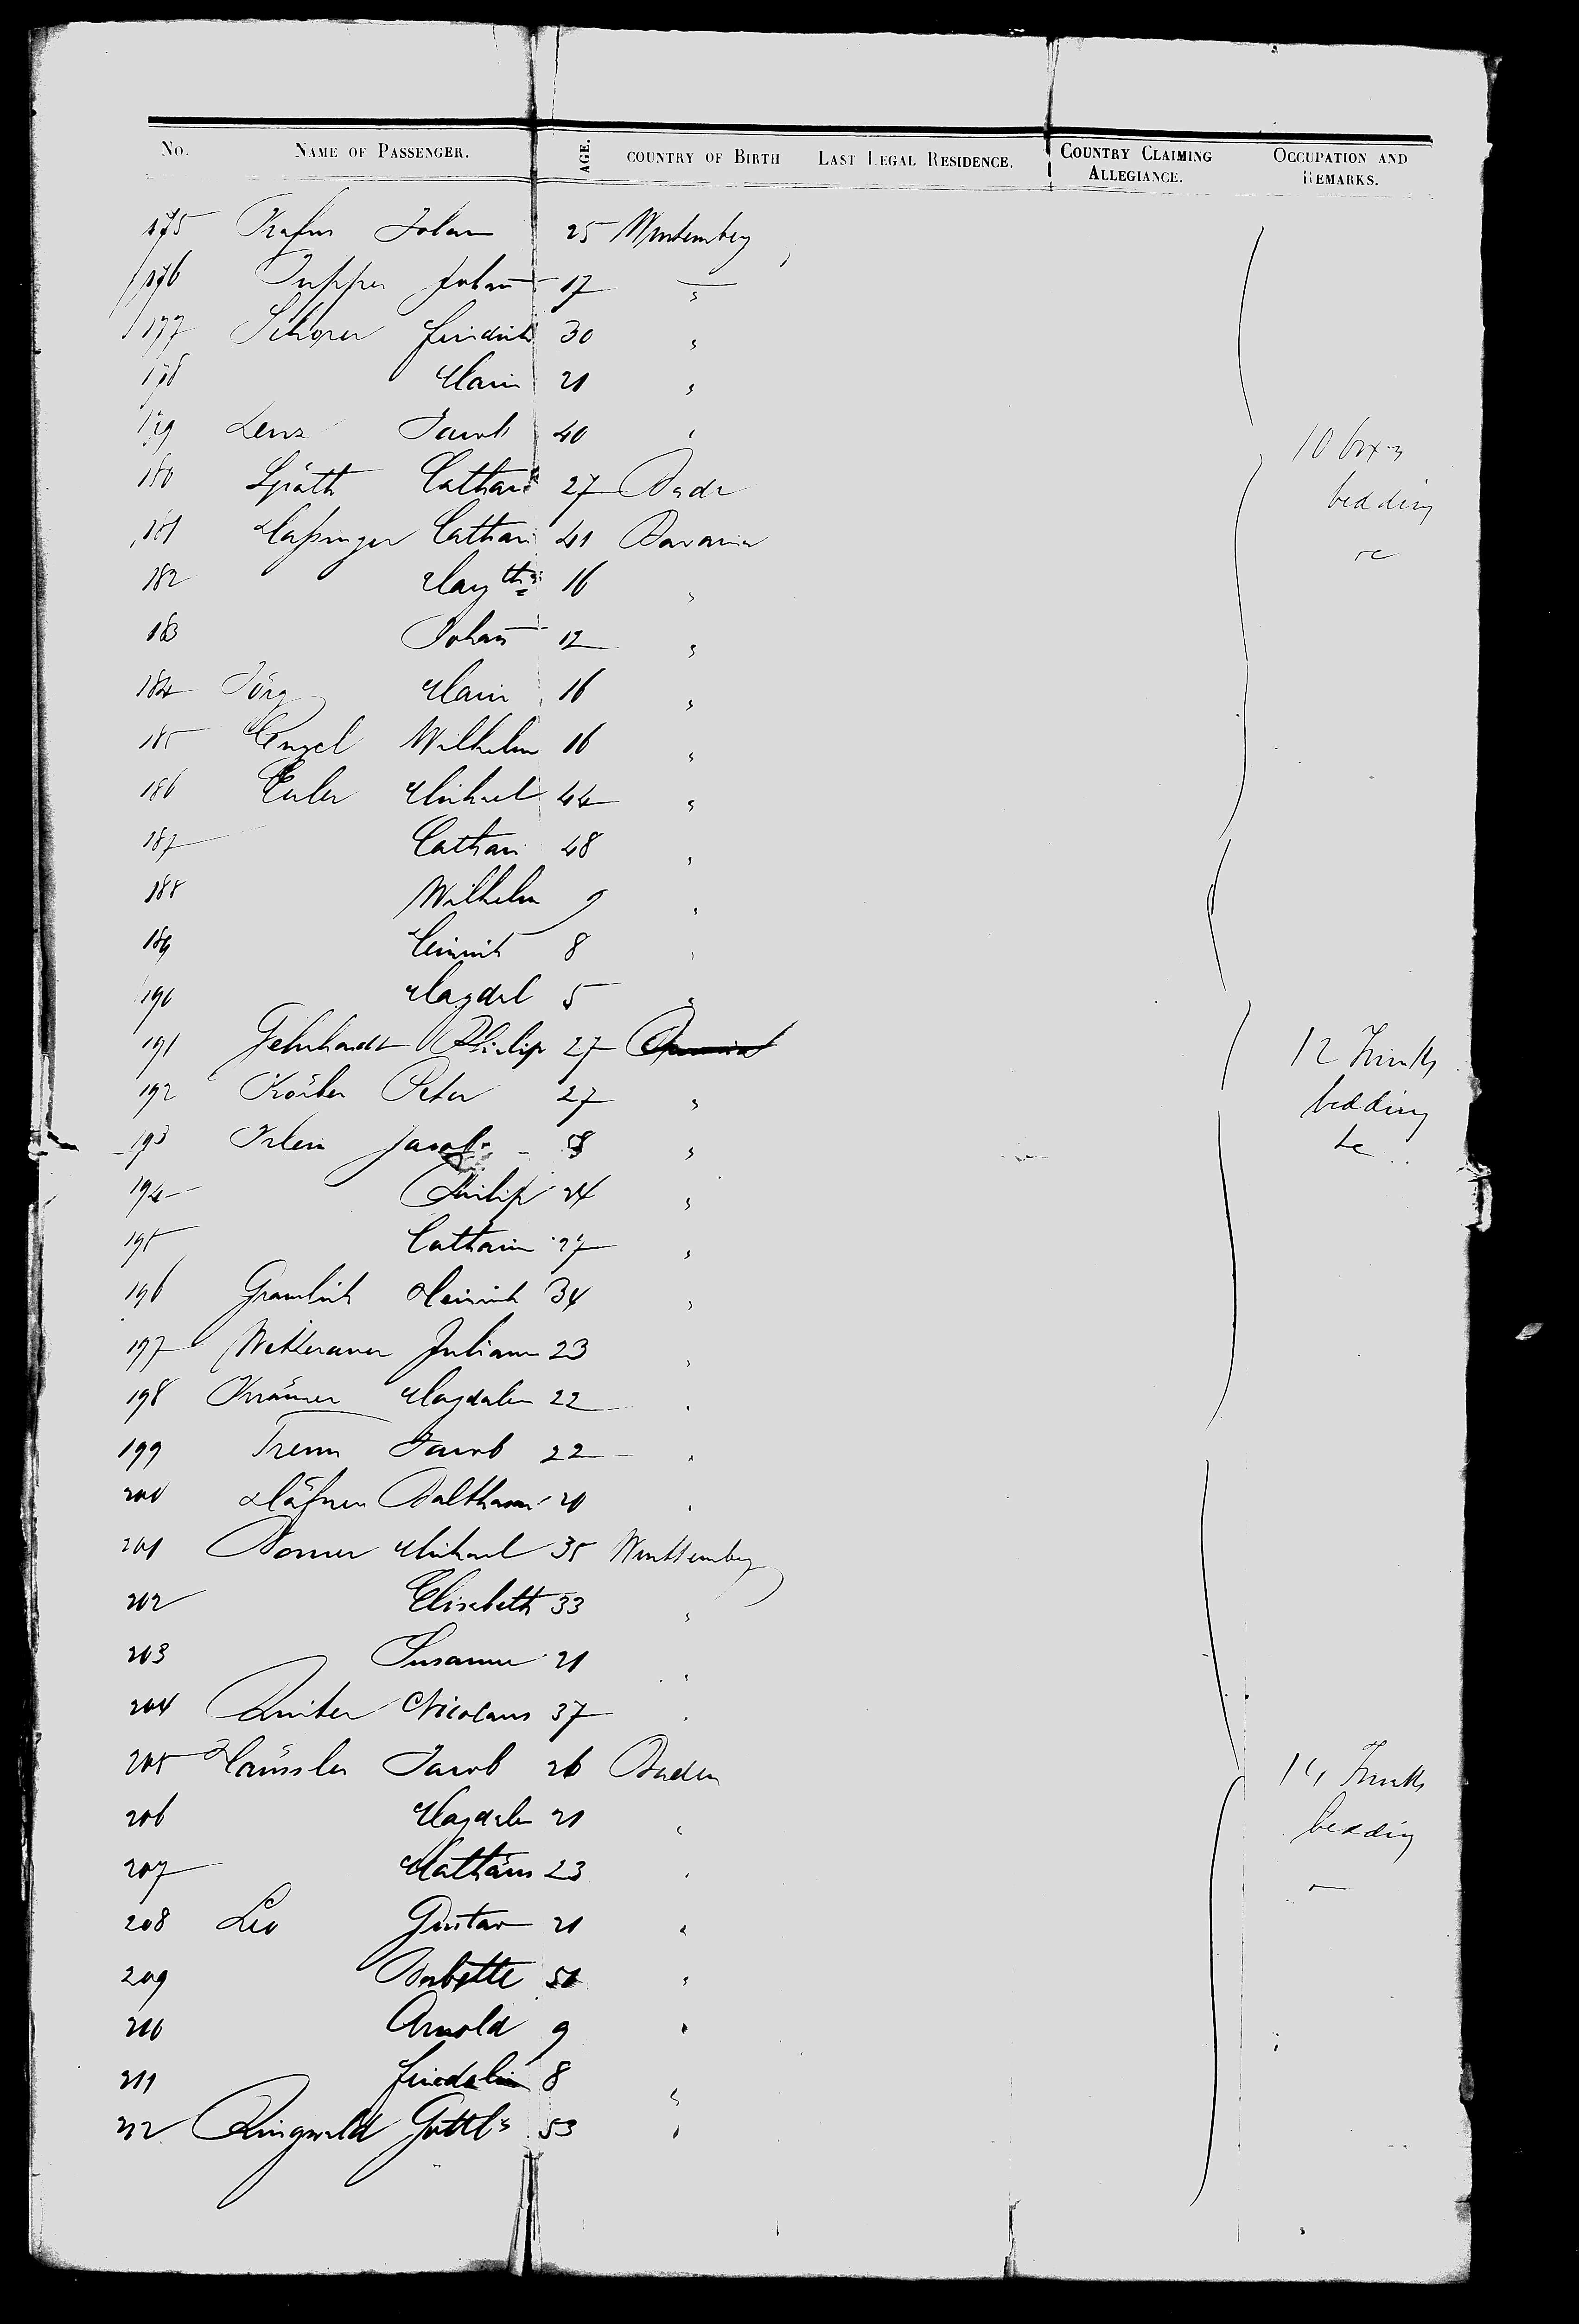 No. NAME OF PASSENGER. AGE. COUNTRY OF BIRTH LAST LEGAL RESIDENCE. COUNTRY CLAIMING ALLEGIANCE. OCCUPATION AND REMARKS.
175 Johann 25 Wurtemberg
176 Johan 17 "
177 Schorer Friedrich 30 "
178 Marie 21 "
179 Lenz Jacob 40 "
10 boxes
180 Späth Cathari 27 Bade
bedding
181 Cathari 41 Bavaria
182 16 "
183 Johan 12 "
184 Jörg Marie 16 "
185 Engel Wilhelm 16 "
186 Euler Michael 44 "
187 Cathari 48 "
188 Wilhelm 9 "
189 Heinrich 8 "
190 Magdal 5 "
191 Gehrhardt Philip 27
12 Trunks
192 Körber Peter 27 "
bedding
193 Jacob "
194 Philip 24 "
195 Catharin 27 "
196 Gramlich Heinrich 34 "
197 Wetterauer Juliann 23 "
198 Krämer Magdalen 22 "
199 Jacob 22 "
200 Häfner Balthasar 20 "
201 Michael 35 Wurttemberg
202 Elisabeth 33 "
203 Susanne 21 "
204 Nicolaus 37 "
205 Häussler Jacob 26 Baden
Trunks
206 Magdalen 21 "
bedding
207 Mathäus 23 "
208 Leo Gustav 21 "
209 Babette "
210 Arnold 9 "
211 8 "
212 Ringwald Gottl 53 "